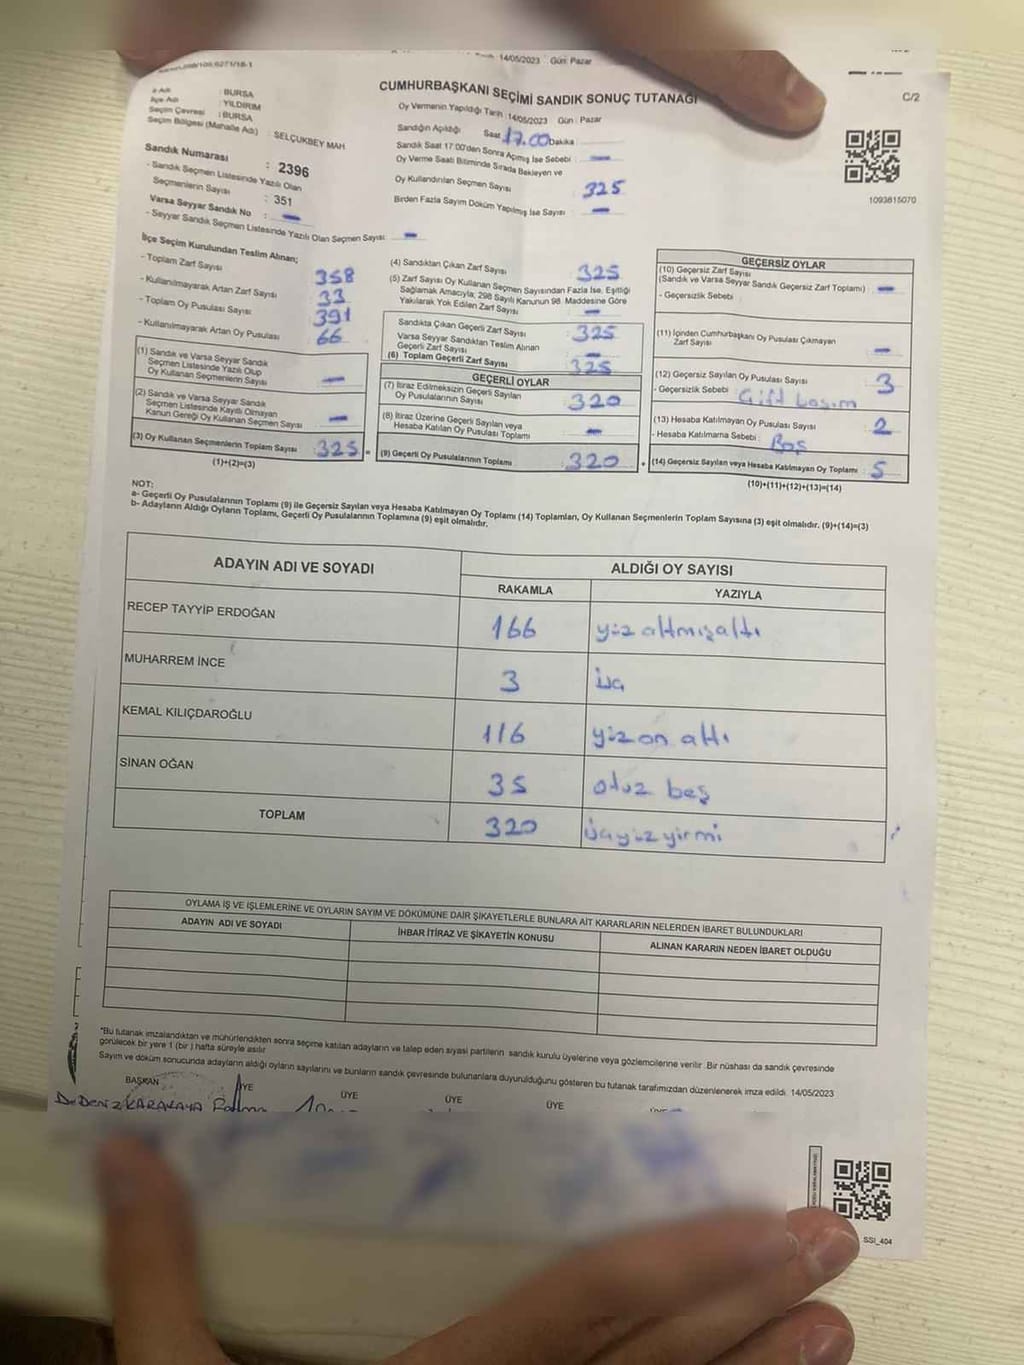 14/05/2023 Gün: Pazar
CUMHURBAŞKANI SEÇİMİ SANDIK SONUÇ TUTANAĞI
C/2
İlçe Adı
: BURSA
: YILDIRIM
Seçim Çevresi : BURSA
Seçim Bölgesi (Mahalle Adı) : SELÇUKBEY MAH
Sandık Numarası : 2396
- Sandık Seçmen Listesinde Yazılı Olan
Seçmenlerin Sayısı : 351
Varsa Seyyar Sandık No : -
- Seyyar Sandık Seçmen Listesinde Yazılı Olan Seçmen Sayısı -
Oy Vermenin Yapıldığı Tarih : 14/05/2023 Gün : Pazar
Sandığın Açıldığı Saat 17.00 Dakika
Sandık Saat 17:00'den Sonra Açılmış İse Sebebi : -
Oy Verme Saati Bitiminde Sırada Bekleyen ve
Oy Kullandırılan Seçmen Sayısı 325
Birden Fazla Sayım Döküm Yapılmış İse Sayısı -
1093815070
İlçe Seçim Kurulundan Teslim Alınan;
- Toplam Zarf Sayısı 358
- Kullanılmayarak Artan Zarf Sayısı 33
- Toplam Oy Pusulası Sayısı 391
- Kullanılmayarak Artan Oy Pusulası 66
(1) Sandık ve Varsa Seyyar Sandık
Seçmen Listesinde Yazılı Olup
Oy Kullanan Seçmenlerin Sayısı -
(2) Sandık ve Varsa Seyyar Sandık
Seçmen Listesinde Kayıtlı Olmayan
Kanun Gereği Oy Kullanan Seçmen Sayısı -
(3) Oy Kullanan Seçmenlerin Toplam Sayısı 325
(1)+(2)=(3)
(4) Sandıktan Çıkan Zarf Sayısı 325
(5) Zarf Sayısı Oy Kullanan Seçmen Sayısından Fazla İse, Eşitliği
Sağlamak Amacıyla; 298 Sayılı Kanunun 98. Maddesine Göre
Yakılarak Yok Edilen Zarf Sayısı -
Sandıkta Çıkan Geçerli Zarf Sayısı 325
Varsa Seyyar Sandıktan Teslim Alınan
Geçerli Zarf Sayısı -
(6) Toplam Geçerli Zarf Sayısı 325
GEÇERLİ OYLAR
(7) İtiraz Edilmeksizin Geçerli Sayılan
Oy Pusulalarının Sayısı 320
(8) İtiraz Üzerine Geçerli Sayılan veya
Hesaba Katılan Oy Pusulası Toplamı -
= (9) Geçerli Oy Pusulalarının Toplamı 320
GEÇERSİZ OYLAR
(10) Geçersiz Zarf Sayısı
(Sandık ve Varsa Seyyar Sandık Geçersiz Zarf Toplamı) -
- Geçersizlik Sebebi :
(11) İçinden Cumhurbaşkanı Oy Pusulası Çıkmayan
Zarf Sayısı -
(12) Geçersiz Sayılan Oy Pusulası Sayısı 3
- Geçersizlik Sebebi :
(13) Hesaba Katılmayan Oy Pusulası Sayısı 2
- Hesaba Katılmama Sebebi : Boş
+ (14) Geçersiz Sayılan veya Hesaba Katılmayan Oy Toplamı : 5
(10)+(11)+(12)+(13)=(14)
NOT:
a- Geçerli Oy Pusulalarının Toplamı (9) ile Geçersiz Sayılan veya Hesaba Katılmayan Oy Toplamı (14) Toplamları, Oy Kullanan Seçmenlerin Toplam Sayısına (3) eşit olmalıdır. (9)+(14)=(3)
b- Adayların Aldığı Oyların Toplamı, Geçerli Oy Pusulalarının Toplamına (9) eşit olmalıdır.
ADAYIN ADI VE SOYADI
ALDIĞI OY SAYISI
RAKAMLA YAZIYLA
RECEP TAYYİP ERDOĞAN 166 yüz altmışaltı
MUHARREM İNCE 3 üç
KEMAL KILIÇDAROĞLU 116 yüz on altı
SİNAN OĞAN 35 otuz beş
TOPLAM 320 üçyüz yirmi
OYLAMA İŞ VE İŞLEMLERİNE VE OYLARIN SAYIM VE DÖKÜMÜNE DAİR ŞİKAYETLERLE BUNLARA AİT KARARLARIN NELERDEN İBARET BULUNDUKLARI
ADAYIN ADI VE SOYADI İHBAR İTİRAZ VE ŞİKAYETİN KONUSU ALINAN KARARIN NEDEN İBARET OLDUĞU
*Bu tutanak imzalandıktan ve mühürlendikten sonra seçime katılan adayların ve talep eden siyasi partilerin sandık kurulu üyelerine veya gözlemcilerine verilir. Bir nüshası da sandık çevresinde
görülecek bir yere 1 (bir) hafta süreyle asılır.
Sayım ve döküm sonucunda adayların aldığı oyların sayılarını ve bunların sandık çevresinde bulunanlara duyurulduğunu gösteren bu tutanak tarafımızdan düzenlenerek imza edildi. 14/05/2023
BAŞKAN ÜYE ÜYE ÜYE ÜYE
DENİZ KARAKAYA
SSI_404